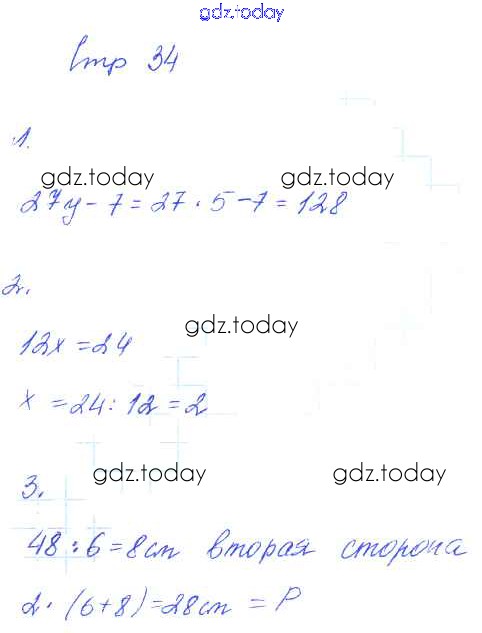 gdz.today
Стр 34
1.
gdz.today gdz.today
27y - 7 = 27 · 5 - 7 = 128
2.
gdz.today
12x = 24
x = 24 : 12 = 2
gdz.today gdz.today
3.
48 : 6 = 8см вторая сторона
2 · (6 + 8) = 28см = P